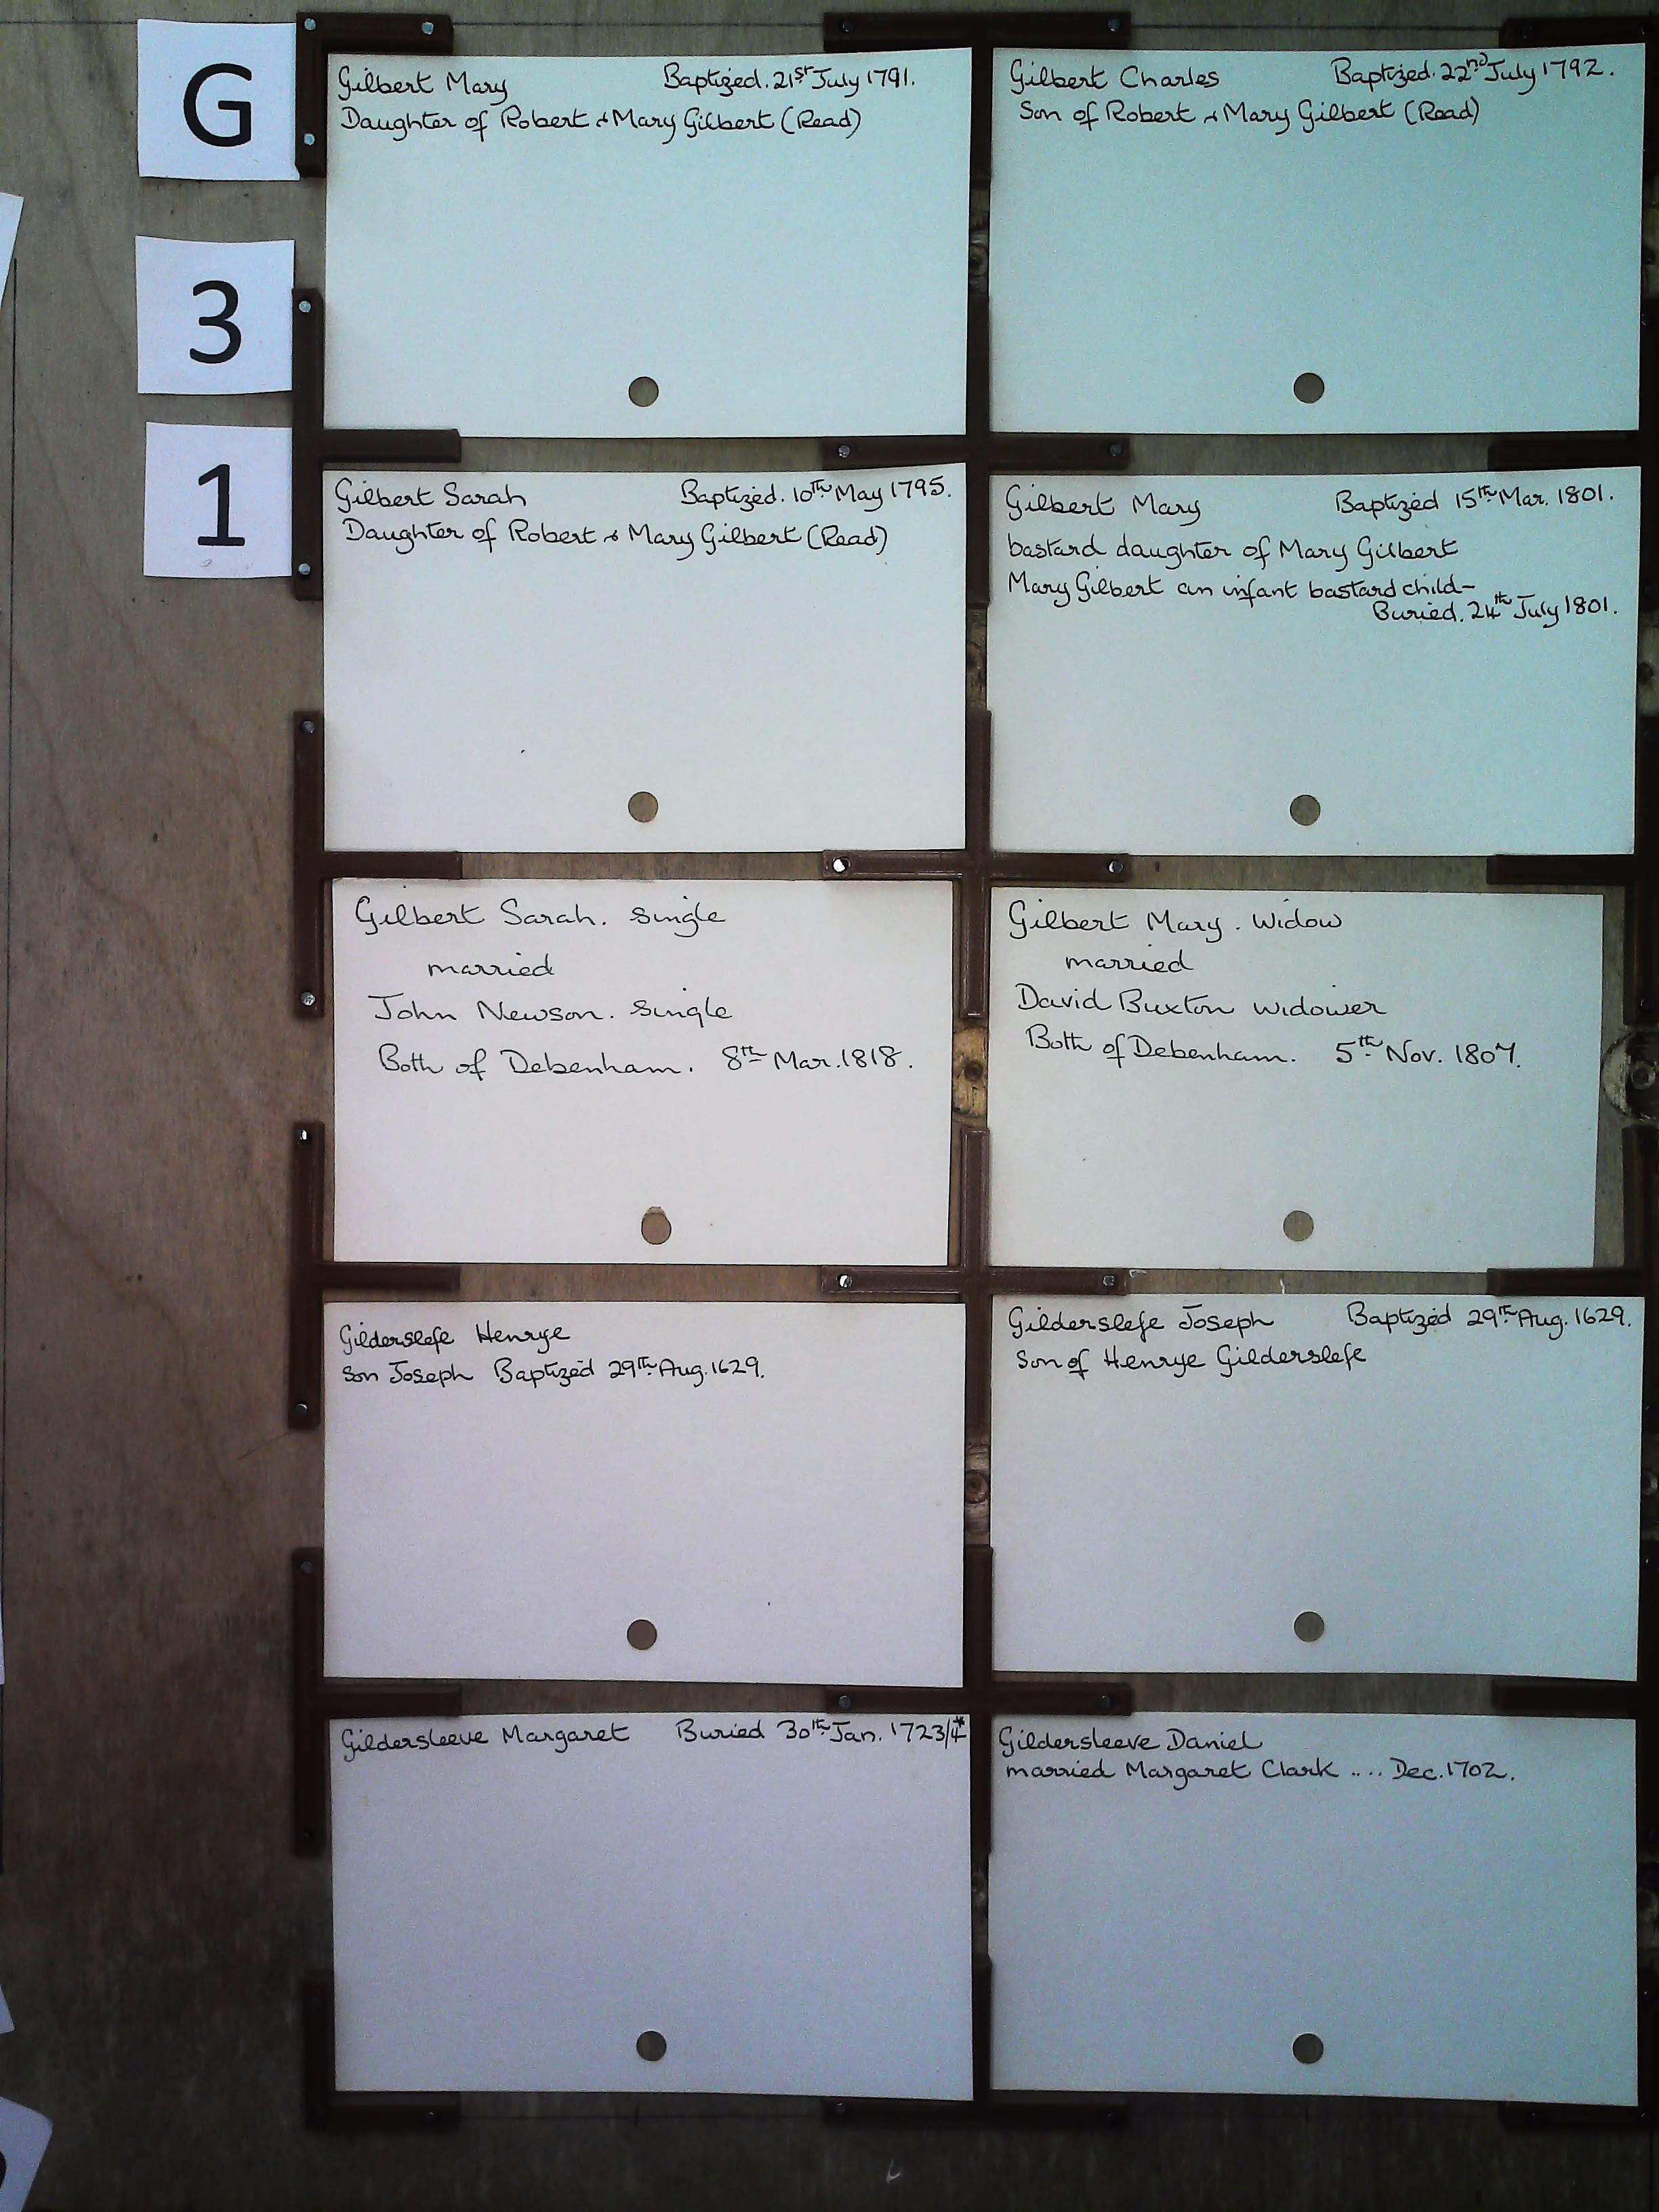 G
3
1
Gilbert Mary Baptized. 21st July 1791.
Daughter of Robert & Mary Gilbert (Read)
Gilbert Charles Baptized. 22nd July 1792.
Son of Robert & Mary Gilbert (Read)
Gilbert Sarah Baptized. 10th May 1795.
Daughter of Robert & Mary Gilbert (Read)
Gilbert Mary Baptized 15th Mar. 1801.
bastard daughter of Mary Gilbert
Mary Gilbert an infant bastard child-
Buried. 24th July 1801.
Gilbert Sarah. single
married
John Newson. single
Both of Debenham. 8th Mar. 1818.
Gilbert Mary. Widow
married
David Buxton widower
Both of Debenham. 5th Nov. 1807.
Gilderslefe Henrye
son Joseph Baptized 29th Aug. 1629.
Gilderslefe Joseph Baptized 29th Aug. 1629.
Son of Henrye Gilderslefe
Gildersleeve Margaret Buried 30th Jan. 1723/4*
Gildersleeve Daniel
married Margaret Clark .... Dec. 1702.